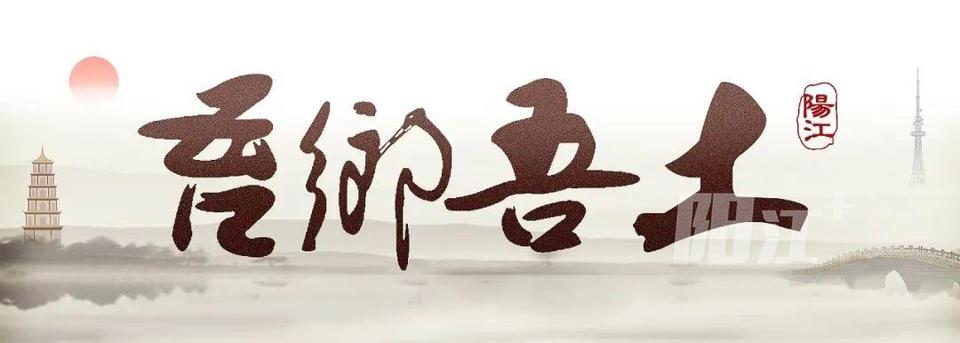 吾鄉吾土
陽江
阳江+